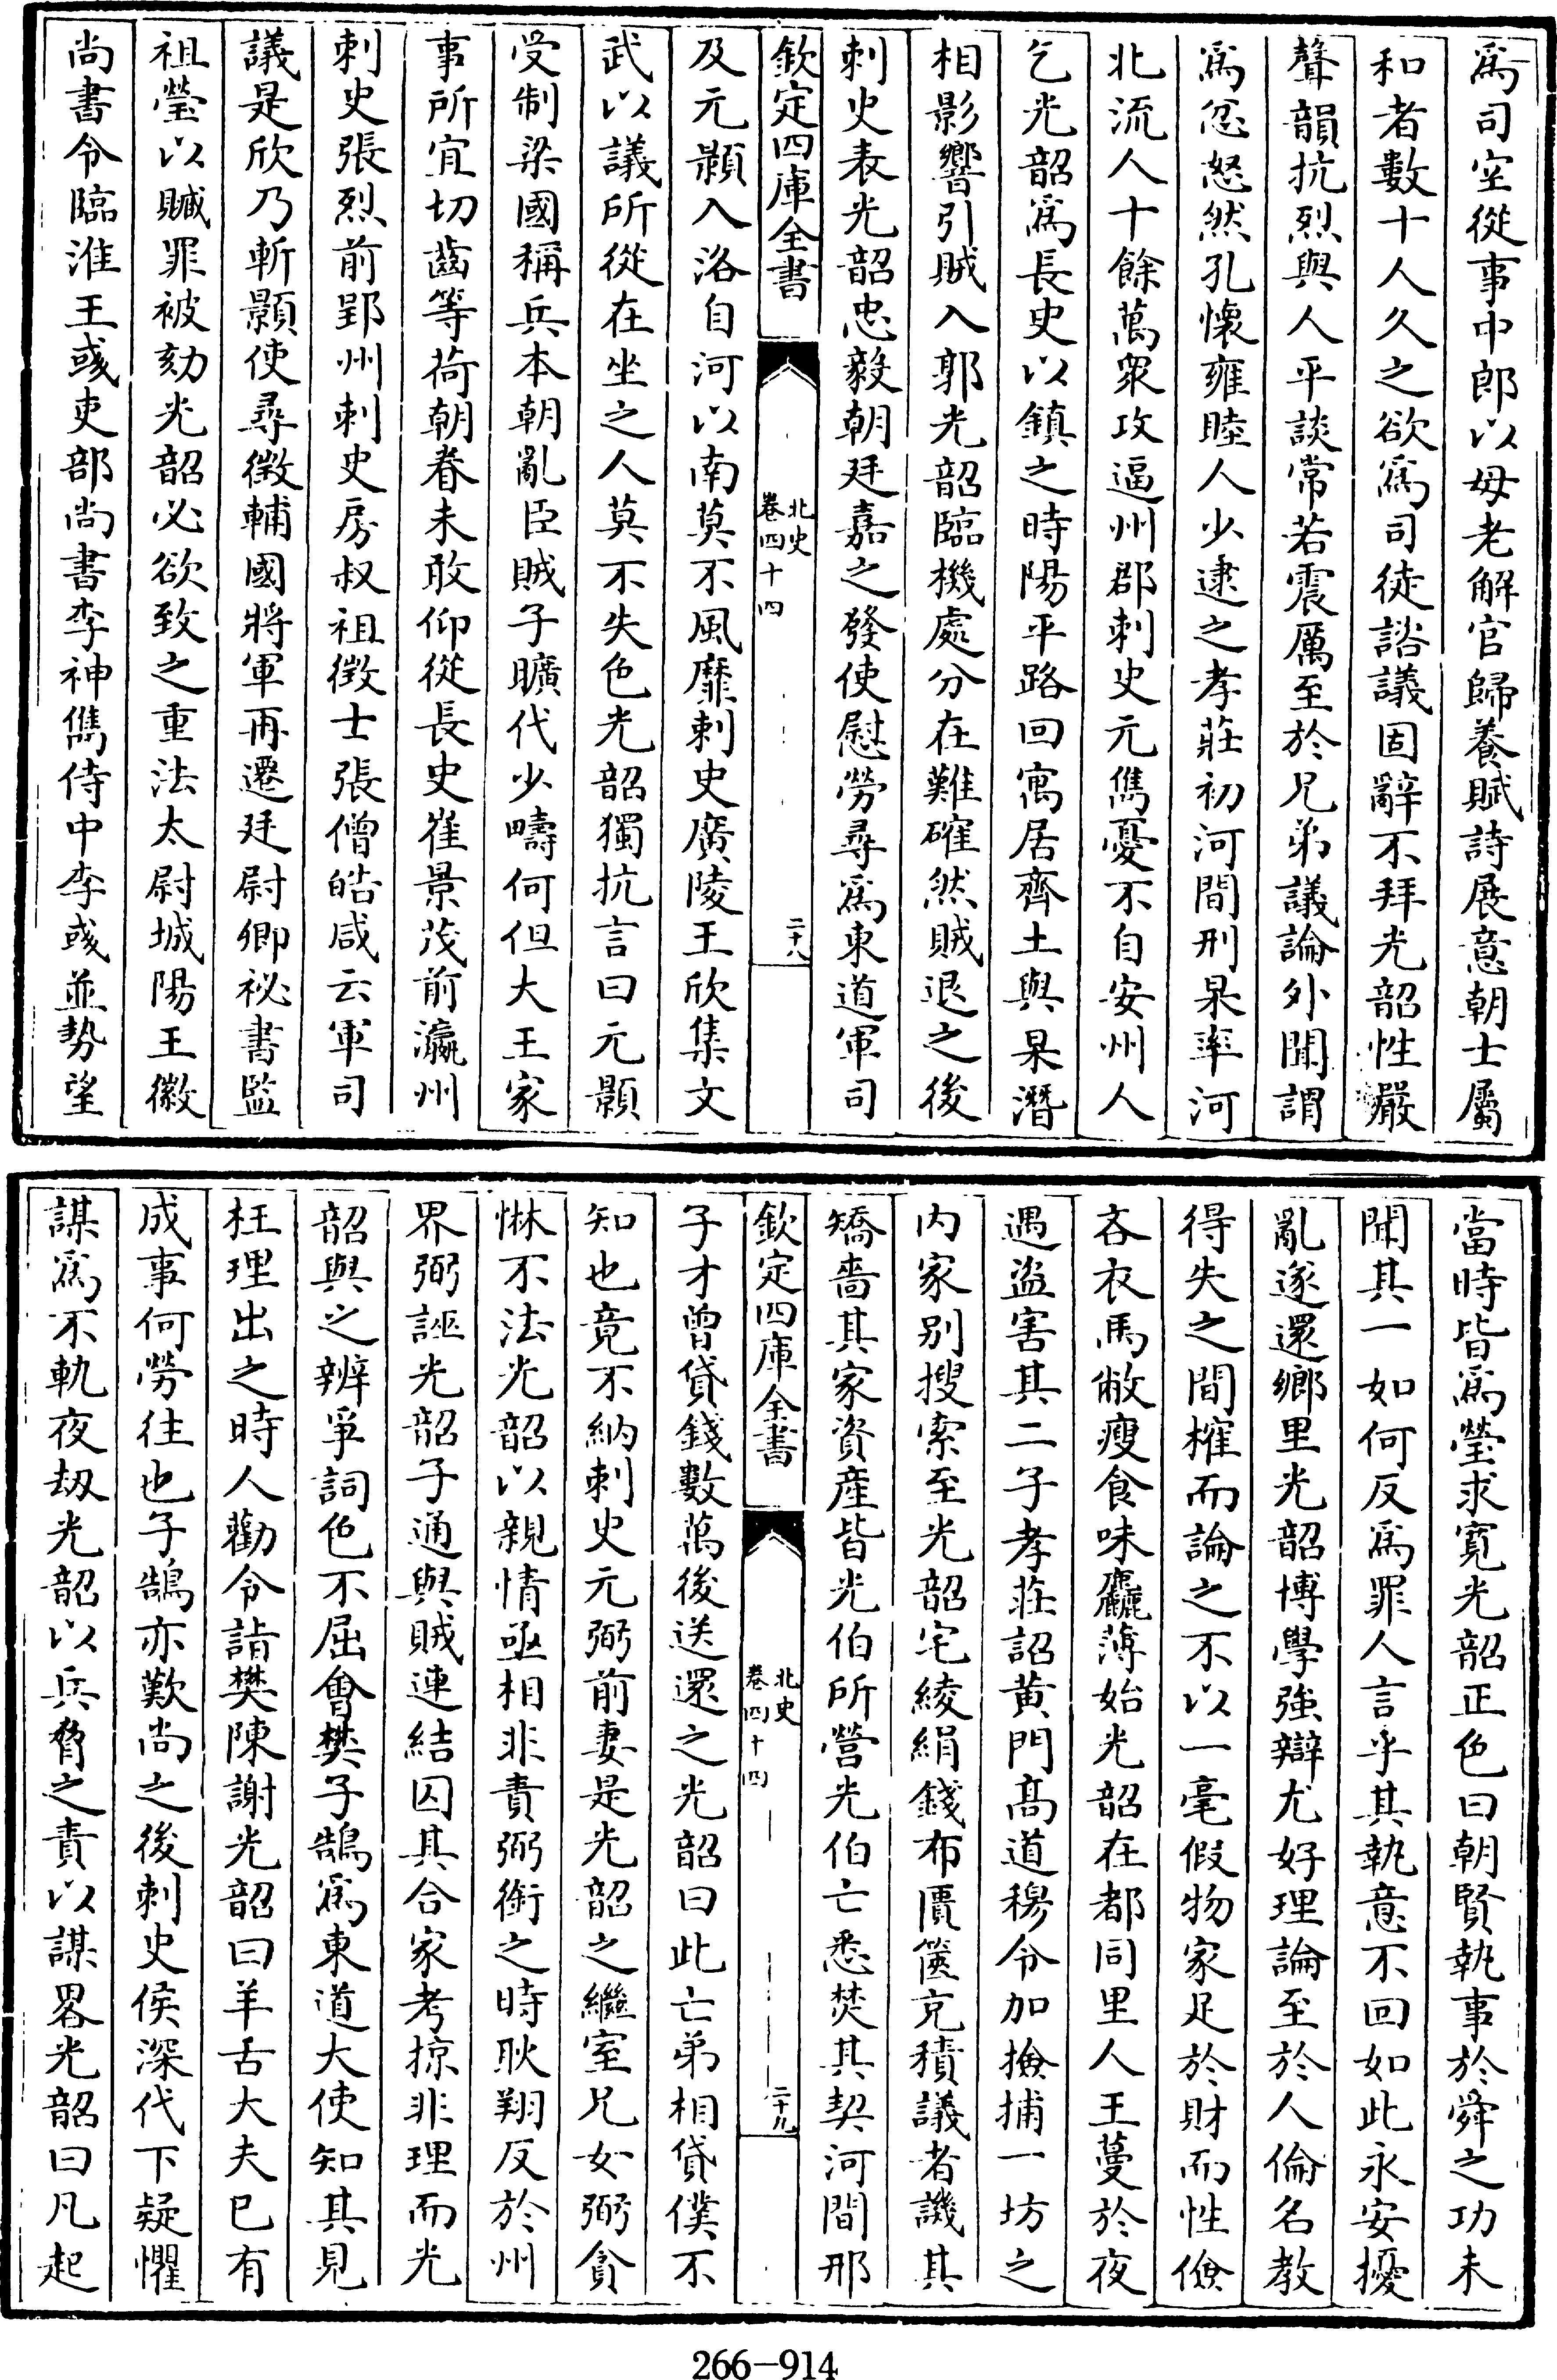 爲司空從事中郎以母老解官歸養賦詩展意朝士屬
和者數十人久之欲爲司徒諮議固辭不拜光韶性嚴
聲韻抗烈與人平談常若震厲至於兄弟議論外聞謂
爲忿怒然孔懷雍睦人少逮之孝莊初河間邢杲率河
北流人十餘萬衆攻逼州郡刺史元儁憂不自安州人
乞光韶爲長史以鎮之時陽平路回寓居齊土與杲潛
相影響引賊入郭光韶臨機處分在難確然賊退之後
刺史表光韶忠毅朝廷嘉之發使慰勞尋爲東道軍司
欽定四庫全書
北史
卷四十四
二十八
及元顥入洛自河以南莫不風靡刺史廣陵王欣集文
武以議所從在坐之人莫不失色光韶獨抗言曰元顥
受制梁國稱兵本朝亂臣賊子曠代少疇何但大王家
事所宜切齒等荷朝眷未敢仰從長史崔景茂前瀛州
刺史張烈前郢州刺史房叔祖徵士張僧皓咸云軍司
議是欣乃斬顥使尋徵輔國將軍再遷廷尉卿祕書監
祖瑩以贓罪被劾光韶必欲致之重法太尉城陽王徽
尚書令臨淮王彧吏部尚書李神儁侍中李彧並勢望
當時皆爲瑩求寬光韶正色曰朝賢執事於舜之功未
聞其一如何反爲罪人言乎其執意不回如此永安擾
亂遂還鄉里光韶博學強辯尤好理論至於人倫名教
得失之間榷而論之不以一毫假物家足於財而性儉
吝衣馬敝瘦食味麤薄始光韶在都同里人王蔓於夜
遇盜害其二子孝莊詔黃門高道穆令加撿捕一坊之
内家别搜索至光韶宅綾絹錢布匱篋充積議者譏其
矯嗇其家資産皆光伯所營光伯亡悉焚其契河間邢
欽定四庫全書
北史
卷四十四
二十九
子才曾貸錢數萬後送還之光韶曰此亡弟相貸僕不
知也竟不納刺史元弼前妻是光韶之繼室兄女弼貪
惏不法光韶以親情亟相非責弼銜之時耿翔反於州
界弼誣光韶子通與賊連結囚其合家考掠非理而光
韶與之辨爭詞色不屈會樊子鵠爲東道大使知其見
枉理出之時人勸令詣樊陳謝光韶曰羊舌大夫已有
成事何勞往也子鵠亦歎尚之後刺史侯深代下疑懼
謀爲不軌夜刼光韶以兵脅之責以謀畧光韶曰凡起
266—914